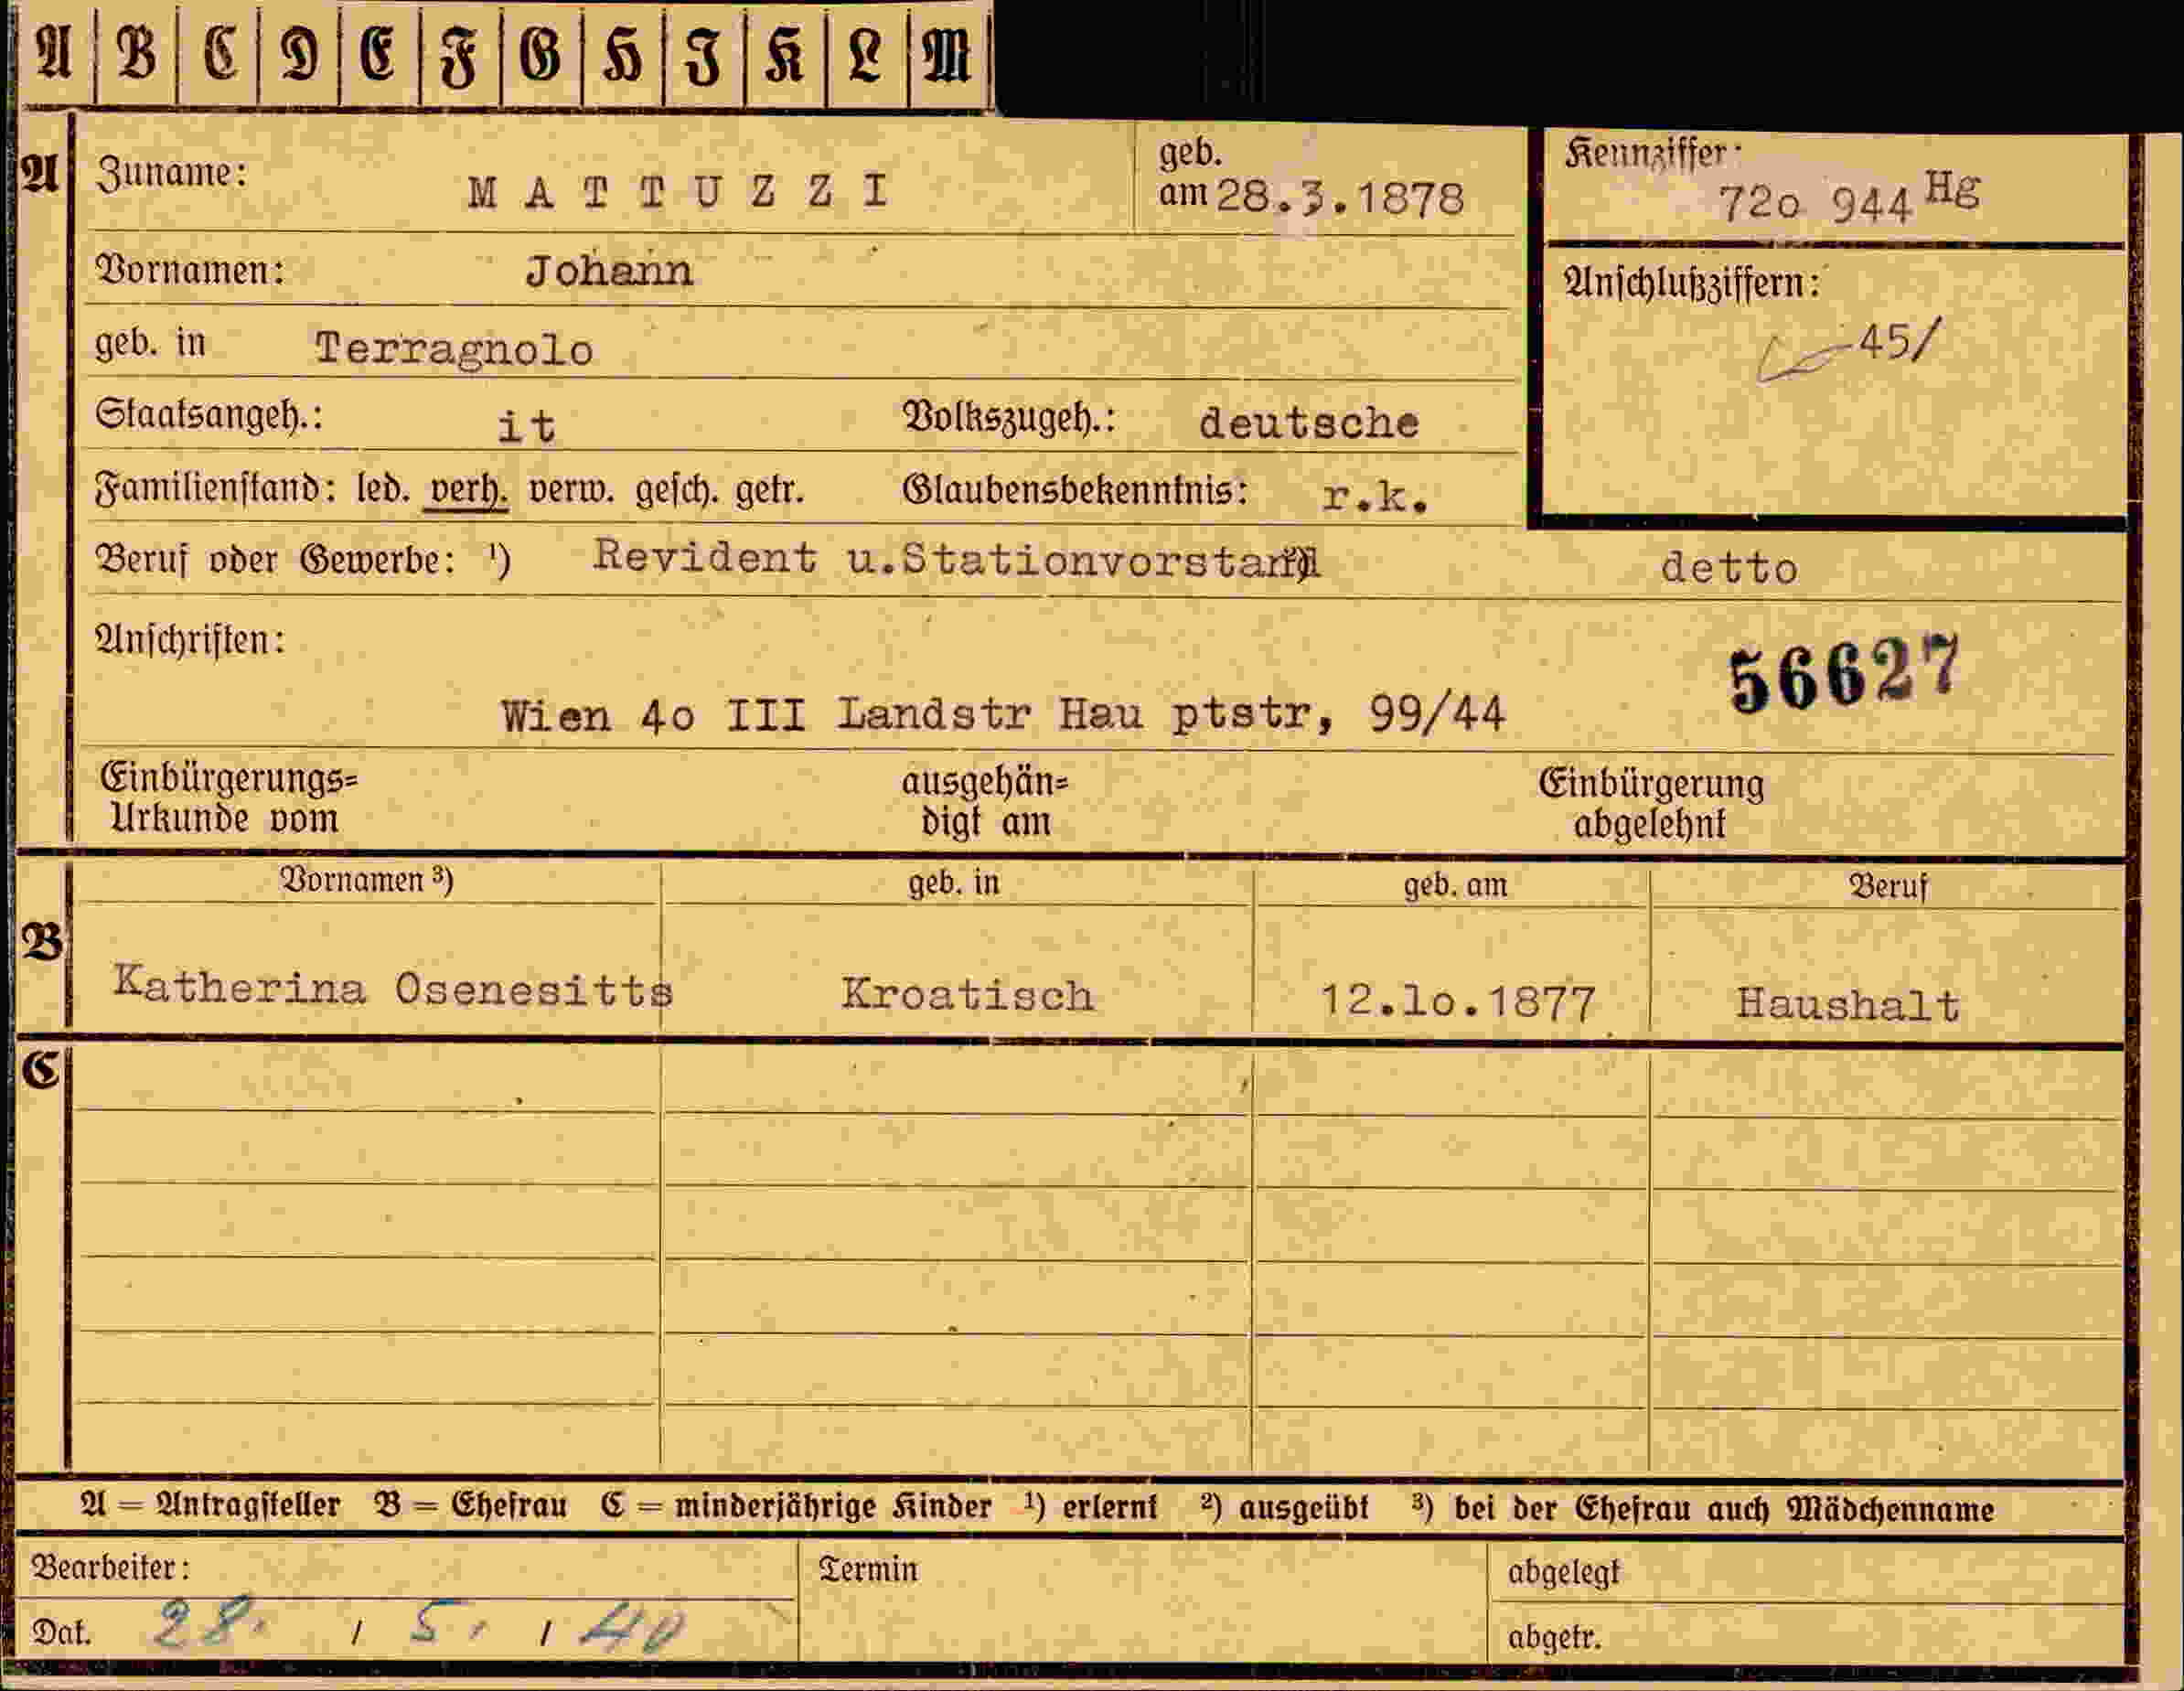 A B C D E F G H I K L M
A Zuname: MATTUZZI geb. am 28.3.1878 Kennziffer: 72o 944 Hg
Vornamen: Johann Anschlußziffern:
geb. in Terragnolo 45/
Staatsangeh.: it Volkszugeh.: deutsche
Familienstand: led. verh. verw. gesch. getr. Glaubensbekenntnis: r.k.
Beruf oder Gewerbe: ¹) Revident u.Stationvorstand detto
Anschriften: 56627
Wien 4o III Landstr Hau ptstr, 99/44
Einbürgerungs= ausgehän= Einbürgerung
Urkunde vom digt am abgelehnt
B Vornamen ³) geb. in geb. am Beruf
Katherina Osenesitts Kroatisch 12.lo.1877 Haushalt
C
A = Antragsteller B = Ehefrau C = minderjährige Kinder ¹) erlernt ²) ausgeübt ³) bei der Ehefrau auch Mädchenname
Bearbeiter: Termin abgelegt
Dat. 28. / 5. / 40 abgetr.